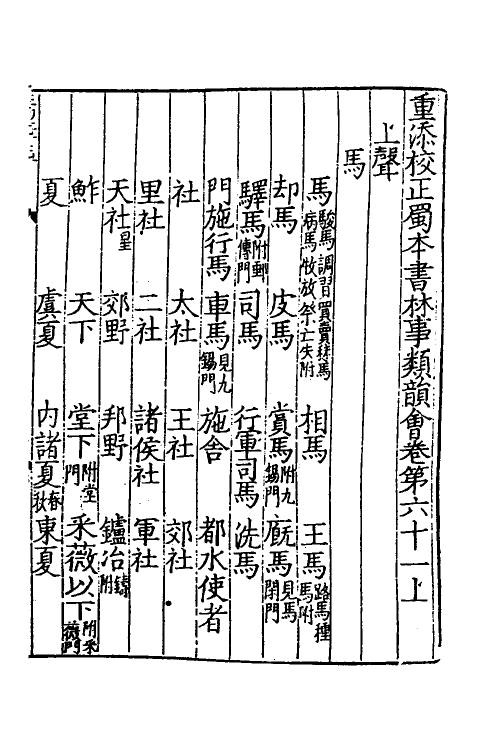 重添校正蜀本書林事類韻會卷第六十一上
上聲
馬
馬 駿馬調習買賣 病馬牧放 亡失附 相馬 王馬 路馬種馬附
却馬 皮馬 賞馬 附九錫門 廐馬 見馬閑門
驛馬 附郵傳門 司馬 行軍司馬 洗馬
門施行馬 車馬 見九錫門 施舍 都水使者
社 太社 王社 郊社
里社 二社 諸侯社 軍社
天社 星 郊野 邦野 鑪冶 附鑄
鮓 天下 堂下 附堂門 采薇以下 附采薇門
夏 虞夏 內諸夏 春秋 東夏